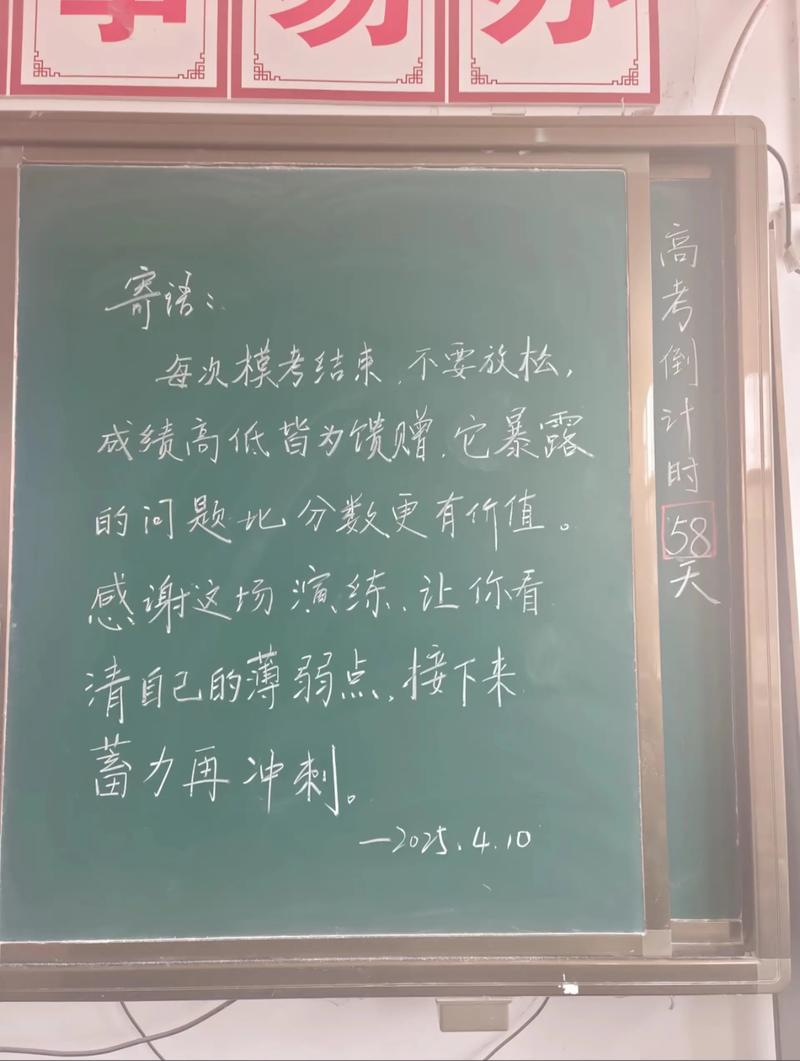 寄语：
每次模考结束，不要放松，
成绩高低皆为馈赠，它暴露
的问题比分数更有价值。
感谢这场演练，让你看
清自己的薄弱点，接下来
蓄力再冲刺。
—2025.4.10
高考倒计时58天